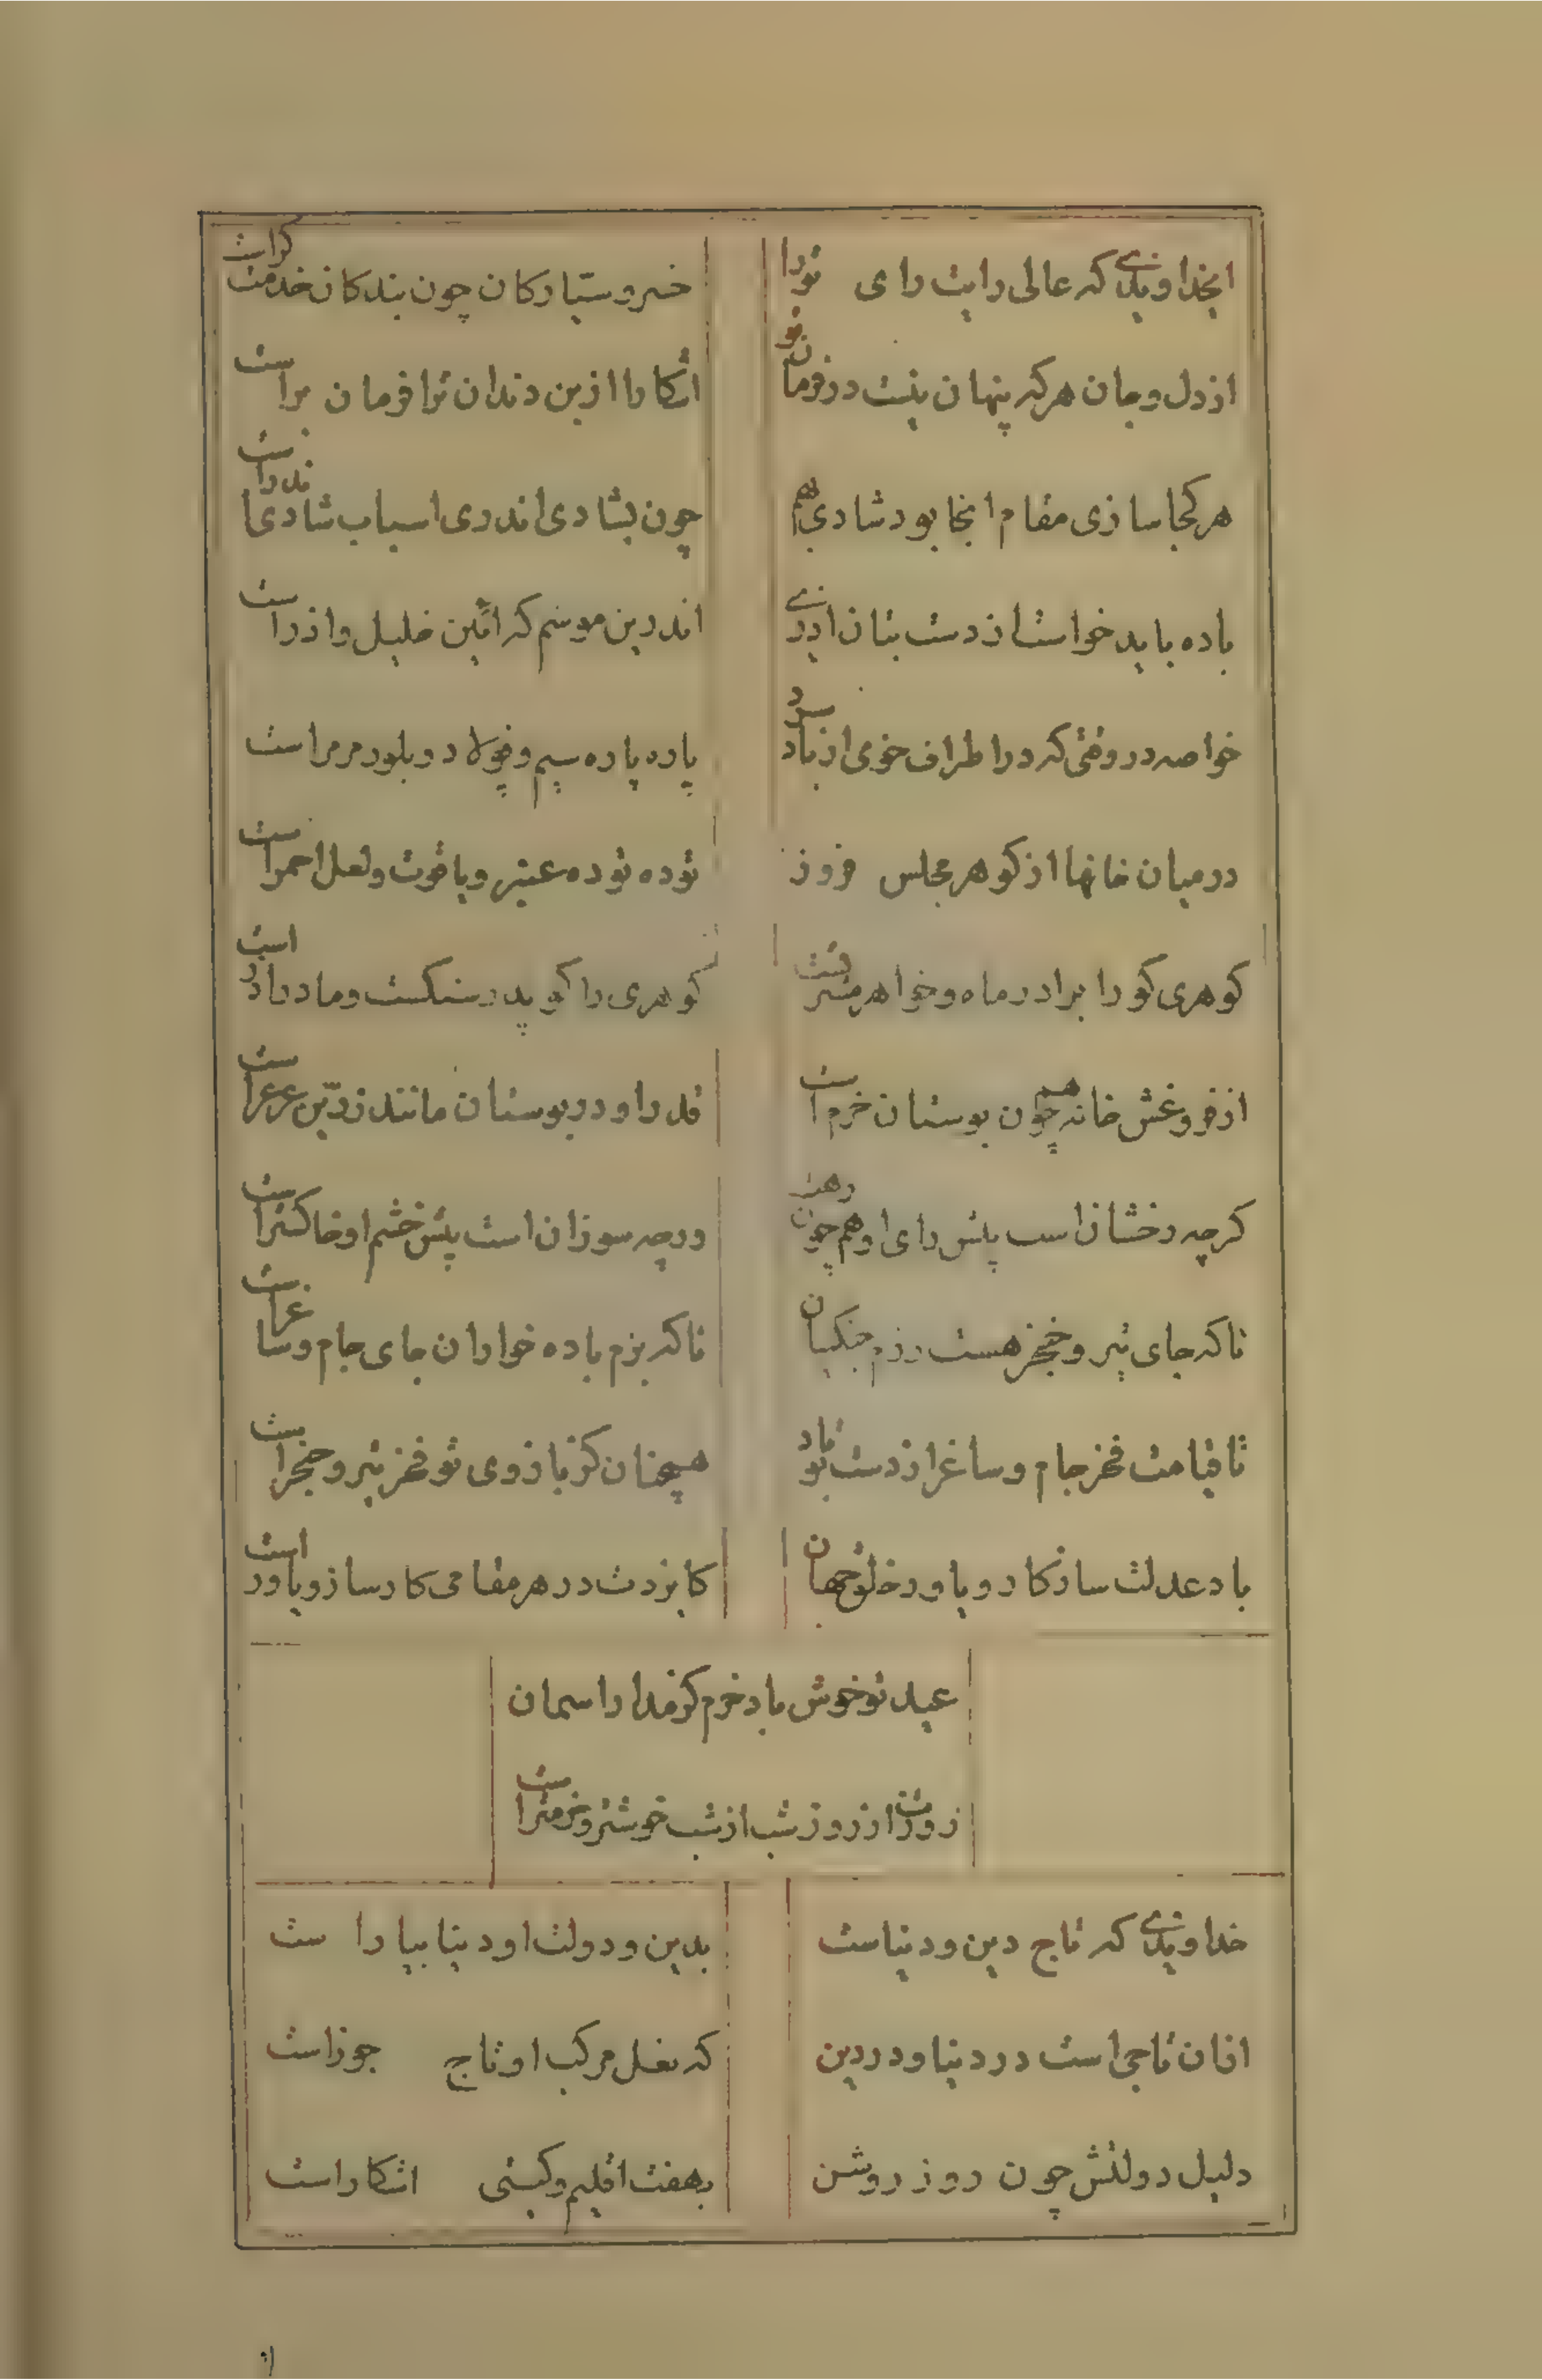 ایخداوندی که عالی رایت رای تورا
خسرو ستیارکان چون بندکان خدمت کراست
از دل و جان هرکه پنهان نیست در فرمان تو
اشکارا از بن دندان ترا فرمان براست
هرکجا سازی مقام انجا بود شادی هم
چون بشادی اندری اسباب شادی اندراست
باده باید خواست از دست بتان ازری
اندرین موسم که ائین خلیل و اذراست
خواصه در وقتی که در اطراف خوی از باد سرد
پاره پاره سیم و فولاد و بلور مرمراست
در میان خانها از کوهر مجلس فروز
توده توده عنبر و یاقوت و لعل احمراست
کوهری کو را برادر ماه و خواهر مشتریست
کوهری را کو پدر سنکست و مادر اذر است
از فروغش خانه همچون بوستان خرم است
قد را و در بوستان مانند زرّین عرعراست
کرچه رخشان است پیش رای او هم چون رهیست
ورچه سوزان است پیش خشم او خاکستراست
تا که جای تیر و خنجر هست رزم جنکیان
تا که بزم باده خواران جای جام و ساغراست
تا قیامت فخر جام و ساغر از دست تو باد
همچنان کز بازوی تو فخر تیر و خنجراست
باد عدلت سازکار و یاور خلق جهان
کایزدت در هر مقامی کارساز و یاور است
عید تو خوش باد خرم کز مدار اسمان
روزت از روز شب از شب خوشتر و خرمتراست
خداوندی که تاج دین و دنیاست
بدین و دولت او دنیا بیاراست
ازان تاجی است در دنیا و در دین
که نعل مرکب او تاج جوزاست
دلیل دولتش چون روز روشن
بهفت اقلیم و کیتی اشکاراست